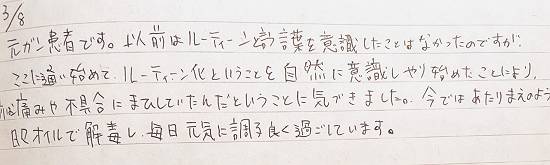 3/8
元ガン患者です。以前はルーティーンと言う言葉を意識したことはなかったのですが、
ここに通い始めて、ルーティーン化ということを自然に意識しやり始めたことにより、
痛みや不具合にまひしていたんだということに気づきました。今ではあたりまえのよう
オイルで解毒し、毎日元気に調子良く過ごしています。